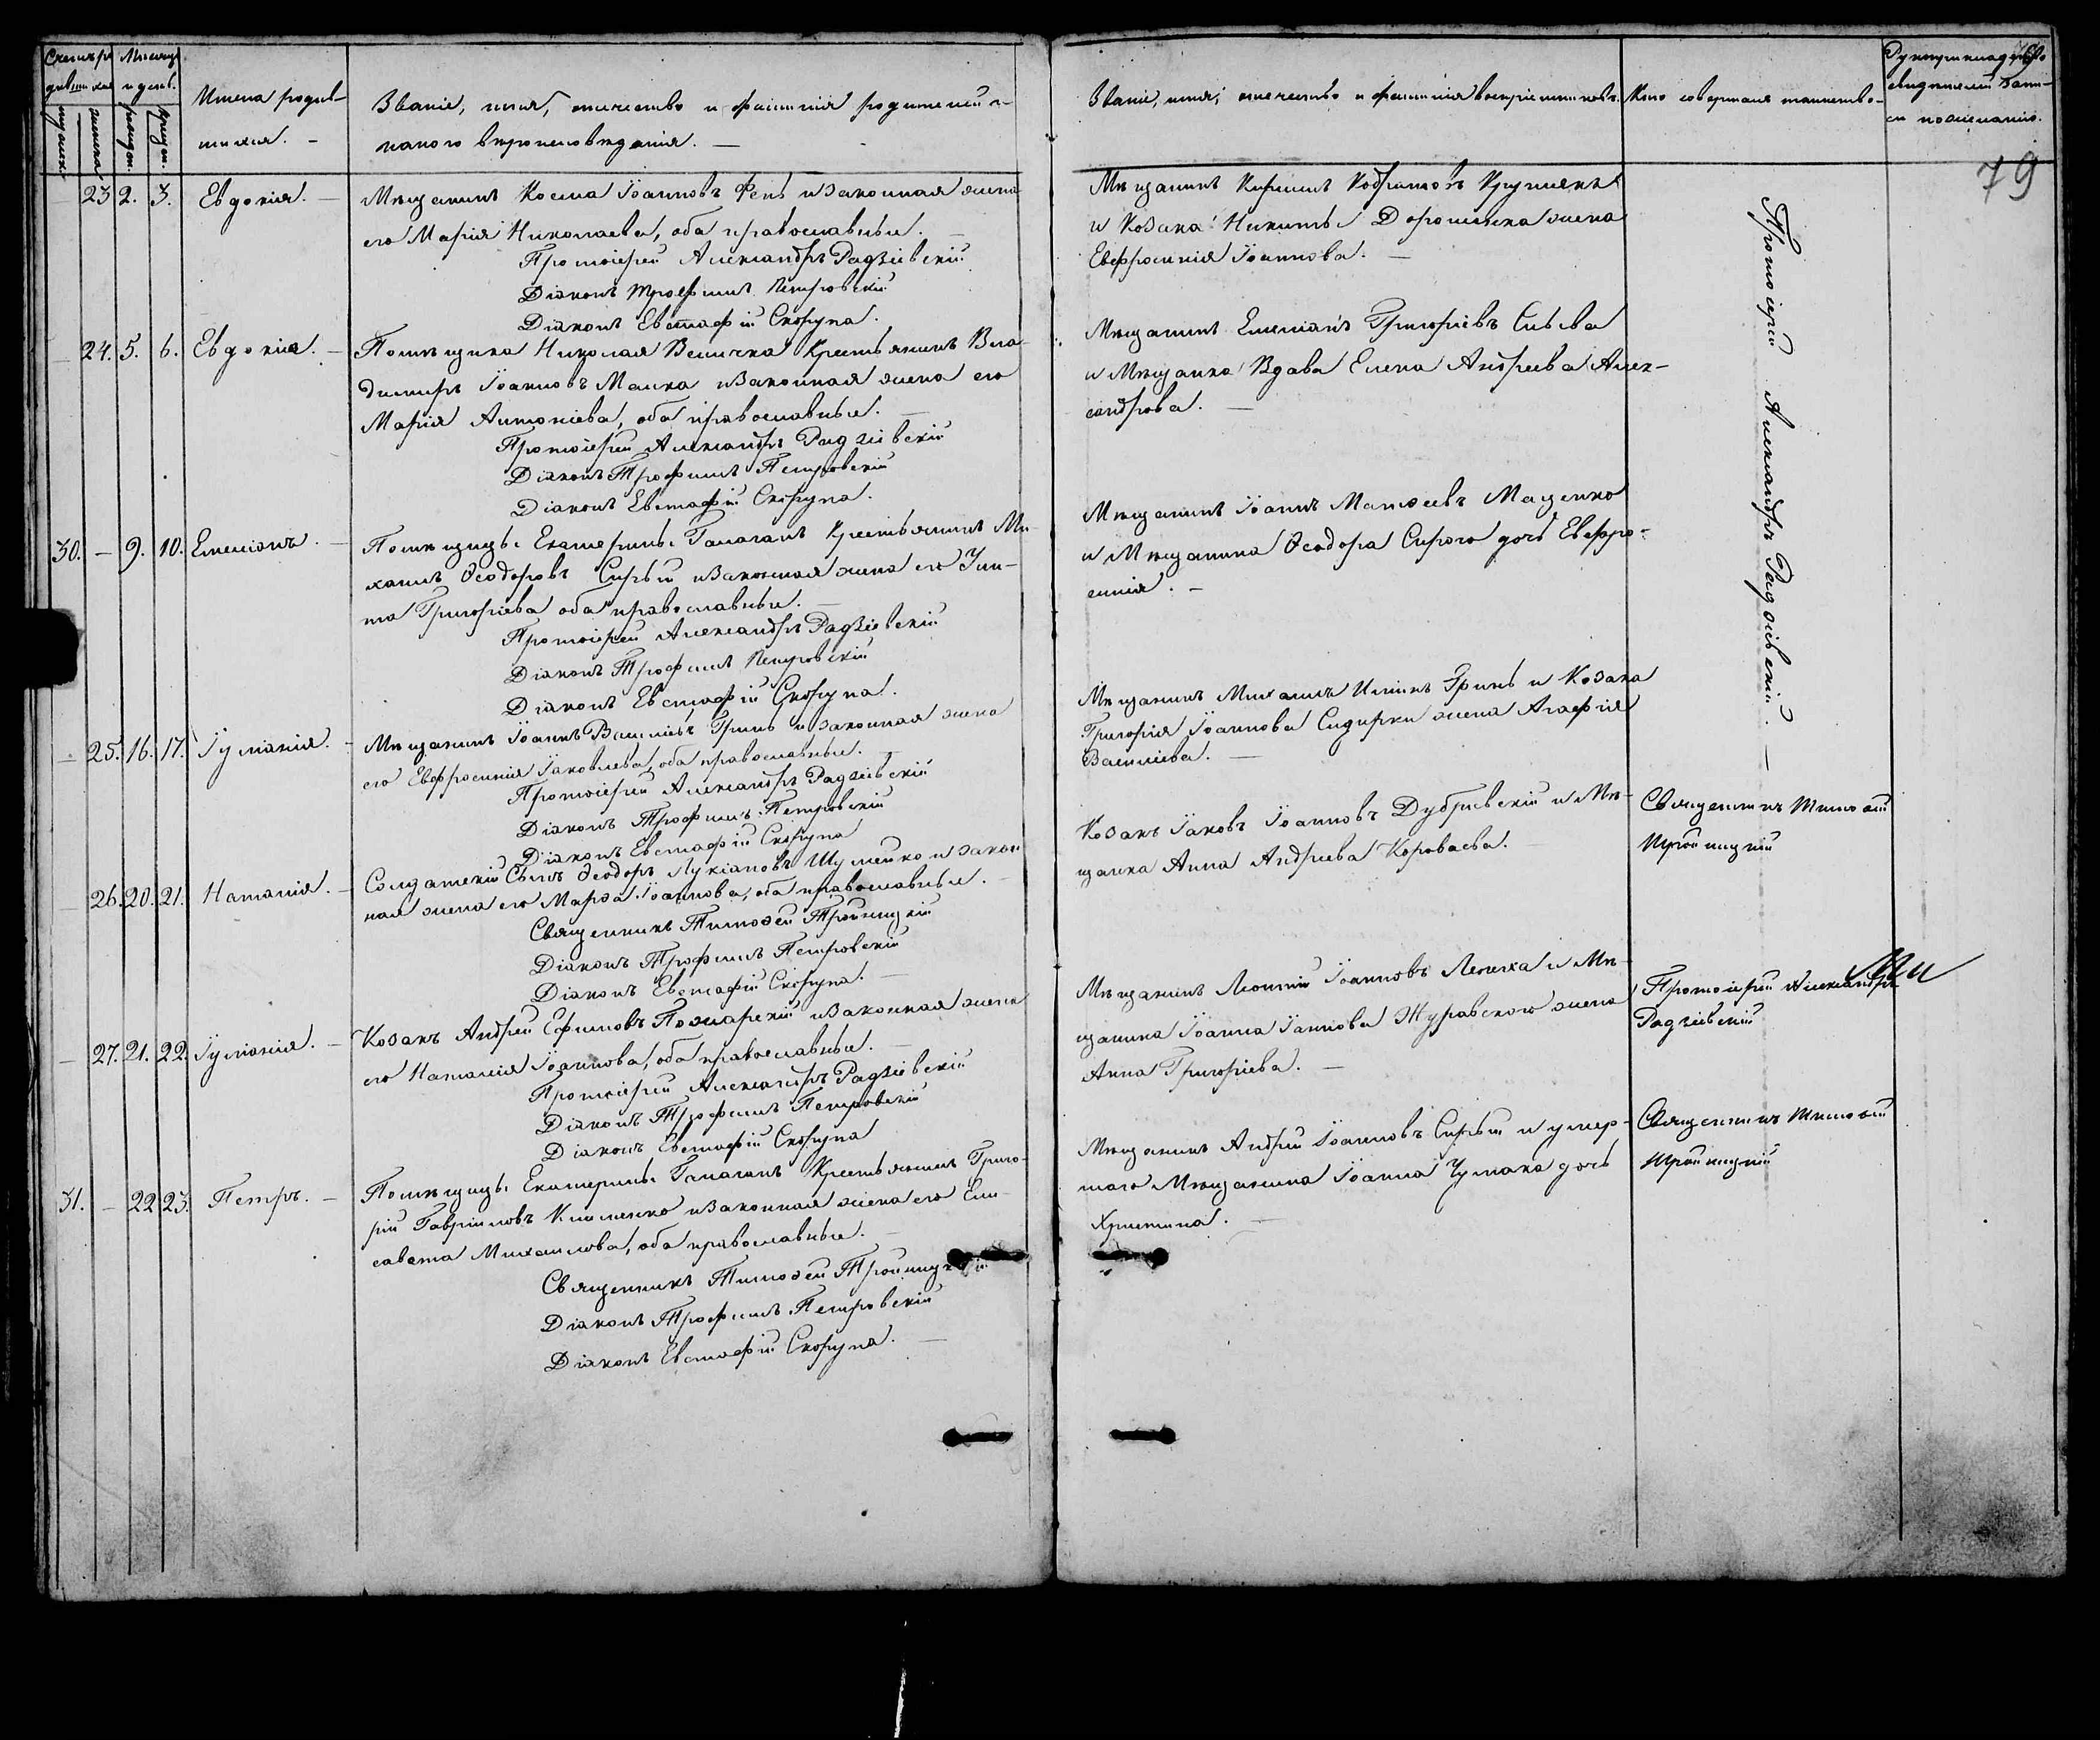 Счетъ ро-
дившихся
Мѣсяцъ
и день.
мужска
женска
рожден.
крещен.
Имена родив-
шихся. —
Званіе, имя, отчество и фамилія родителей и
какого вѣроисповѣданія. —
Званіе, имя, отчество и фамилія воспріемниковъ.
Кто совершалъ таинство
Рукоприкладство
свидѣтелей запи-
си по желанію.
79
— 23 2. 3. Евдокія. —
Мѣщанинъ Косма Іоанновъ Фень и законная жена
его Марія Николаева, оба православные. —
Протоіерей Александръ Радзіевскій
Діаконъ Трофимъ Петровскій
Діаконъ Евстафій Скорупа.
Мѣщанинъ Кириллъ Кодратовъ
и Козака Никиты Дорошенка жена
Евфросинія Іоаннова. —
Протоіерей Александръ Радзіевскій. —
— 24. 5. 6. Евдокія. —
Помѣщика Николая Величка Крестьянинъ Вла-
димиръ Іоанновъ Малка и законная жена его
Марія Антоніева, оба православные. —
Протоіерей Александръ Радзіевскій
Діаконъ Трофимъ Петровскій
Діаконъ Евстафій Скорупа.
Мѣщанинъ Емеліанъ Григоріевъ
и Мѣщанка Вдава Елена Андреева Алек-
сандрова. —
30. — 9. 10. Емеліанъ. —
Помѣщицы Екатерины Галаганъ Крестьянинъ Ми-
хаилъ Ѳеодоровъ Сирый и законная жена его Ули-
та Григоріева оба православные. —
Протоіерей Александръ Радзіевскій
Діаконъ Трофимъ Петровскій
Діаконъ Евстафій Скорупа.
Мѣщанинъ Іоаннъ Матѳеевъ Маценко
и Мѣщанина Ѳеодора Сирого дочь Евфро-
синія. —
— 25. 16. 17. Іуліанія. —
Мѣщанинъ Іоаннъ Василіевъ Гринь и законная жена
его Евфросинія Іаковлева, оба православные. —
Протоіерей Александръ Радзіевскій
Діаконъ Трофимъ Петровскій
Діаконъ Евстафій Скорупа
Мѣщанинъ Михаилъ Илiинъ Гринь и Козака
Григорія Іоаннова Сидирки жена Агафія
Василіева. —
— 26. 20. 21. Наталія. —
Солдатскій Сынъ Ѳеодоръ Лукіановъ Шулейко и закон
ная жена его Марѳа Іоаннова, оба православные. —
Священникъ Тимоѳей Троицкій
Діаконъ Трофимъ Петровскій
Діаконъ Евстафій Скорупа. —
Козакъ Іаковъ Іоанновъ Дубрівскій и Мѣ-
щанка Анна Андреева Короваева. —
Священникъ Тимоѳей
Троицкій
— 27. 21. 22. Іуліанія. —
Козакъ Андрей Ефимовъ Пожарскій и законная жена
его Наталія Іоаннова, оба православные. —
Протоіерей Александръ Радзіевскій
Діаконъ Трофимъ Петровскій
Діаконъ Евстафій Скорупа
Мѣщанинъ Леонтій Іоанновъ Лепеха и Мѣ-
щанина Іоанна Іаннова Журавского жена
Анна Григоріева. —
Протоіерей Александръ
Радзіевскій
31. — 22 23. Петръ. —
Помѣщицы Екатерины Галаганъ Крестьянинъ Григо-
рій Гавріиловъ Клименко и законная жена его Ели-
савета Михаилова, оба православные. —
Священникъ Тимоѳей Троицкій
Діаконъ Трофимъ Петровскій
Діаконъ Евстафій Скорупа. —
Мѣщанинъ Андрей Іоанновъ Сирый и умер-
шаго Мѣщанина Іоанна Чумака дочь
Христина. —
Священникъ Тимоѳей
Троицкій